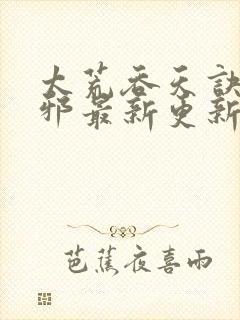 大荒吞天訣
邪最新更新
芭蕉夜喜雨